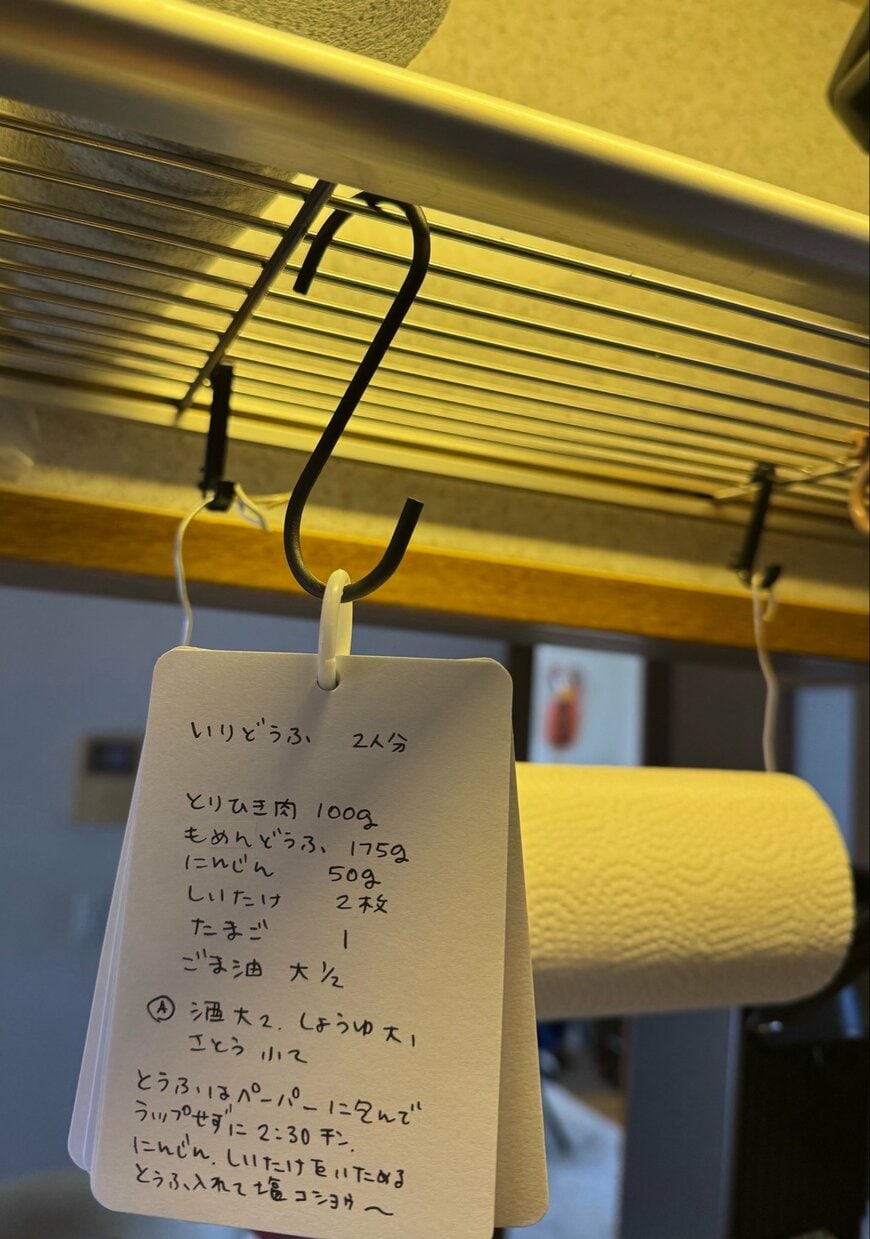 いりどうふ 2人分
とりひき肉 100g
もめんどうふ 175g
にんじん 50g
しいたけ 2枚
たまご 1
ごま油 大1/2
Ⓐ 酒 大2. しょうゆ 大1
さとう 小2
とうふはペーパーに包んで
ラップせずに 2:30 チン.
にんじん. しいたけをいためる
とうふ入れて塩コショウ〜